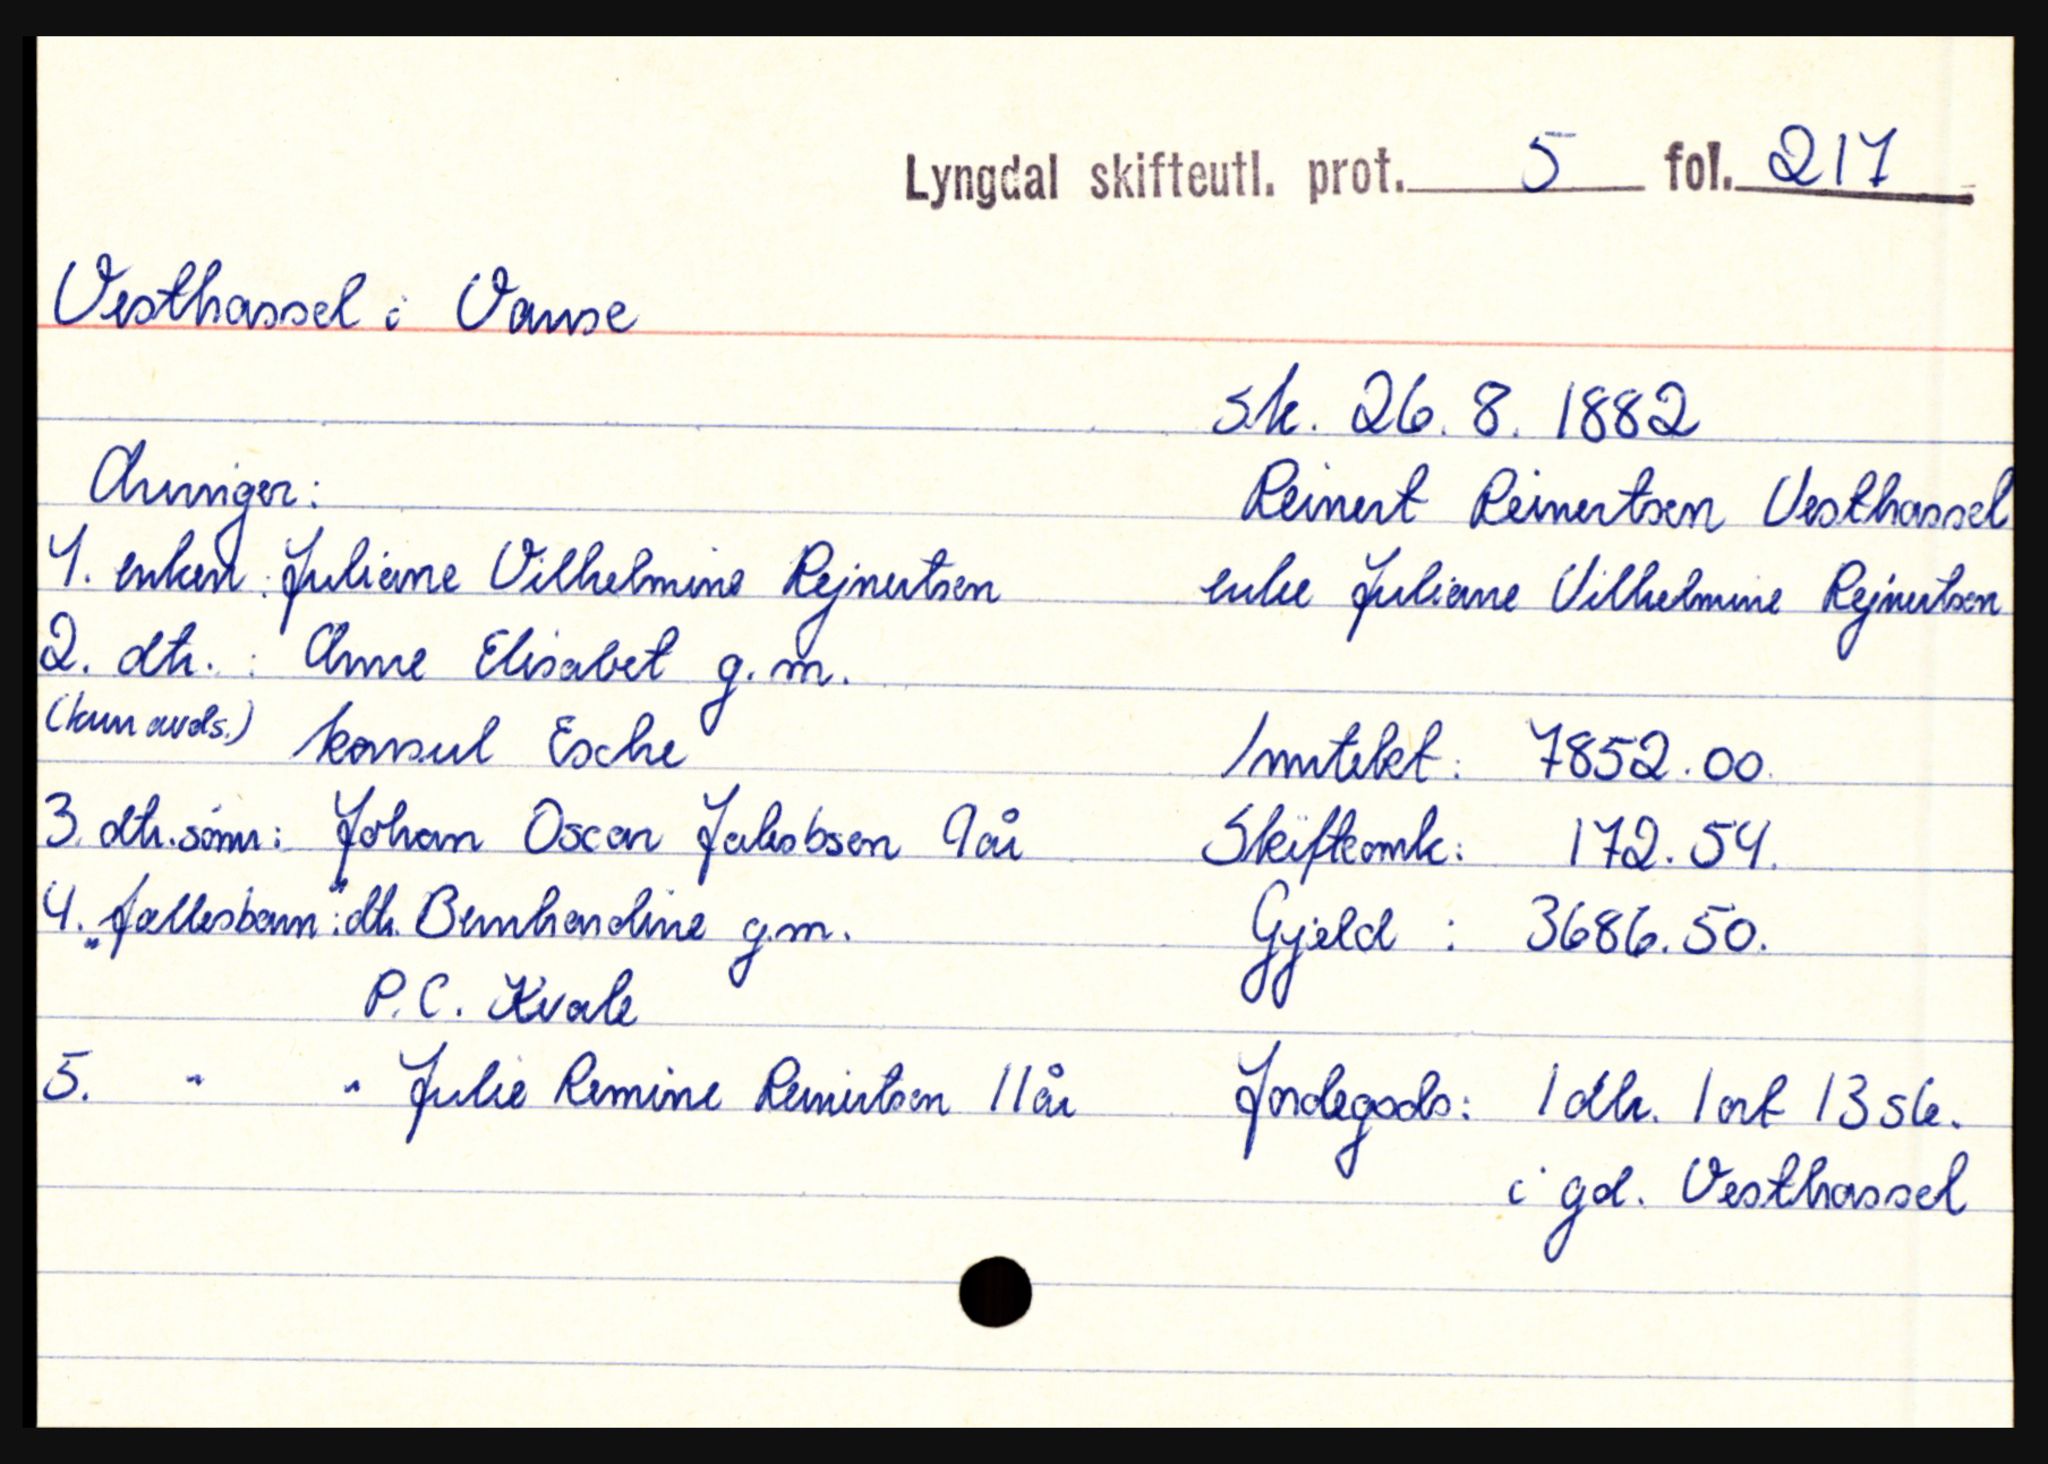 Lyngdal skifteutl. prot. 5 fol. 217
Vesthassel i Vanse
sk. 26. 8. 1882
Arvinger:
Reinert Reinertsen Vesthassel
1. enken: Juliane Vilhelmine Rejnertsen
enke Juliane Vilhelmine Rejnertsen
2. dtr.: Anne Elisabet g.m.
(kun avds.) konsul Esche
Inntekt: 7852.00
3. dtr.sönn: Johan Oscar Jakobsen 9 år
Skifteomk: 172.54.
4. "fællesbarn": dtr. Bernhardine g.m.
Gjeld: 3686.50.
P.C. Kvale
5. " " Julie Remine Reinertsen 11 år
Jordegods: 1 dlr. 1 ort 13 sk.
i gd. Vesthassel